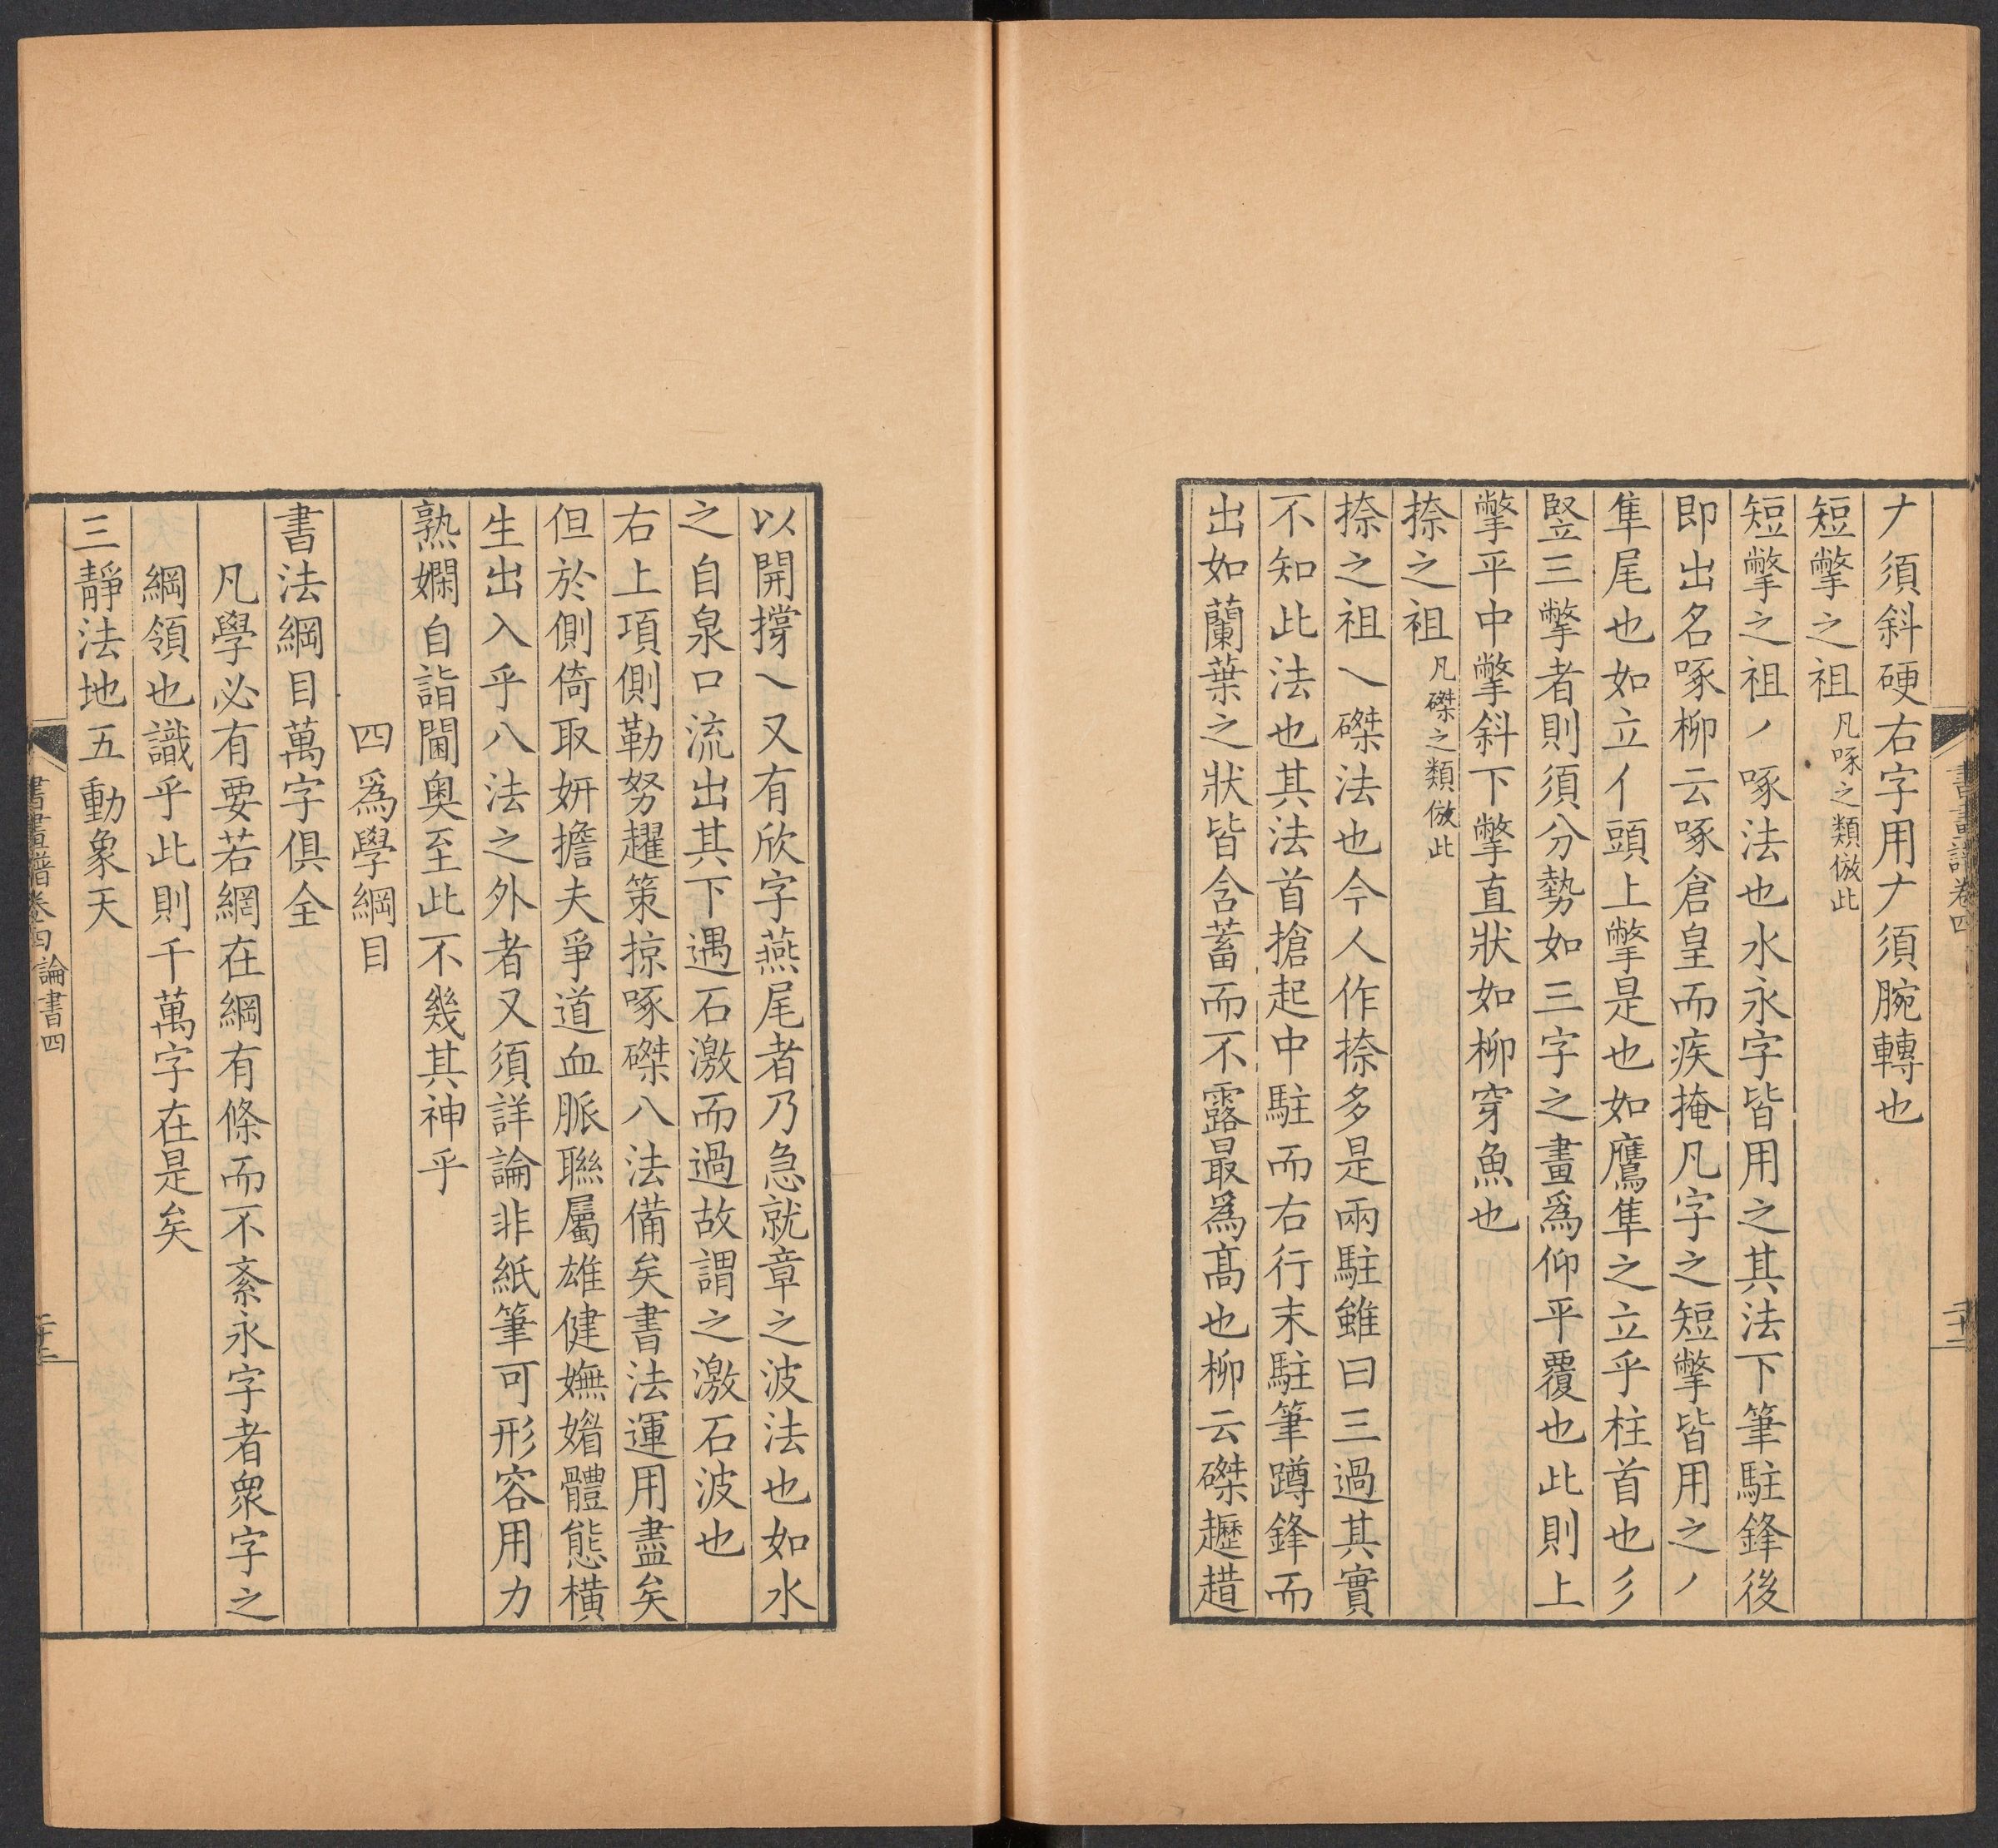 𠂇須斜硬右字用𠂇須腕轉也
短撆之祖凡啄之類倣此
短撆之祖丿啄法也水永字皆用之其法下筆駐鋒後
即出名啄柳云啄倉皇而疾掩凡字之短撆皆用之丿
隼尾也如立亻頭上撆是也如鷹隼之立乎柱首也彡
竪三撆者則須分勢如三字之畫爲仰平覆也此則上
撆平中撆斜下撆直狀如柳穿魚也
捺之祖凡磔之類倣此
捺之祖乀磔法也今人作捺多是兩駐雖曰三過其實
不知此法也其法首搶起中駐而右行末駐筆蹲鋒而
出如蘭葉之狀皆含蓄而不露最爲髙也柳云磔趯趞
書畫譜卷四
以開撐乀又有欣字燕尾者乃急就章之波法也如水
之自泉口流出其下遇石激而過故謂之激石波也
右上項側勒努趯策掠啄磔八法備矣書法運用盡矣
但於側倚取妍擔夫爭道血脈聯屬雄健嫵媚體態橫
生出入乎八法之外者又須詳論非紙筆可形容用力
熟嫻自詣閫奧至此不幾其神乎
四爲學綱目
書法綱目萬字俱全
凡學必有要若網在綱有條而不紊永字者衆字之
綱領也識乎此則千萬字在是矣
三靜法地五動象天
書畫譜卷四論書四